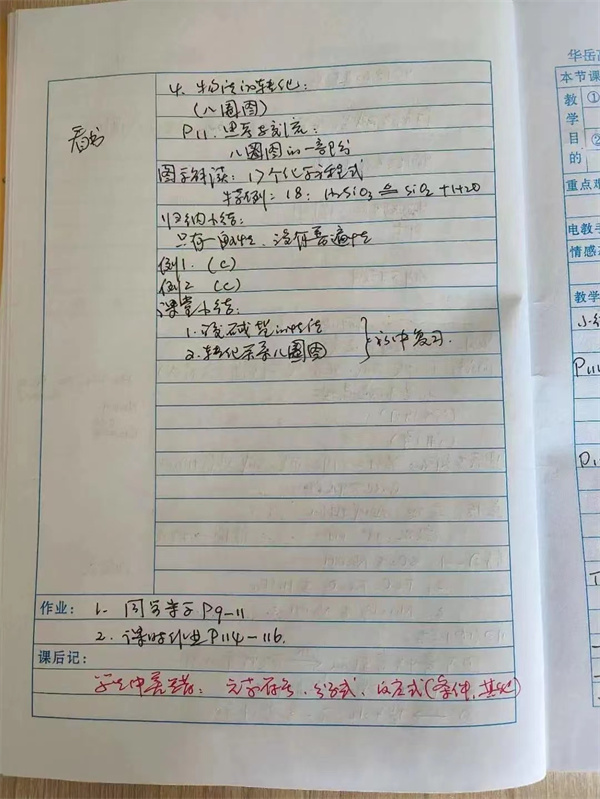 看书
4. 物质的转化:
(八圈图)
P11: 思考与交流:
八圈图的一部分
图示解读: 17个化学方程式
特例: 18: H₂SiO₃ ≜ SiO₂ + H₂O
归纳小结:
只有一般性、没有普遍性
例1. (C)
例2 (C)
课堂小结:
1. 酸碱盐的性质
2. 转化关系八圈图
初中复习.
作业: 1. 同步学习 P9-11
2. 课时作业 P114-116.
课后记:
学生中易错: 元素符号、分子式、反应式(条件、其他)
华岳高
本节课
教学目的
①
②
重点难
电教手
情感态
教学
小结
P111
P11